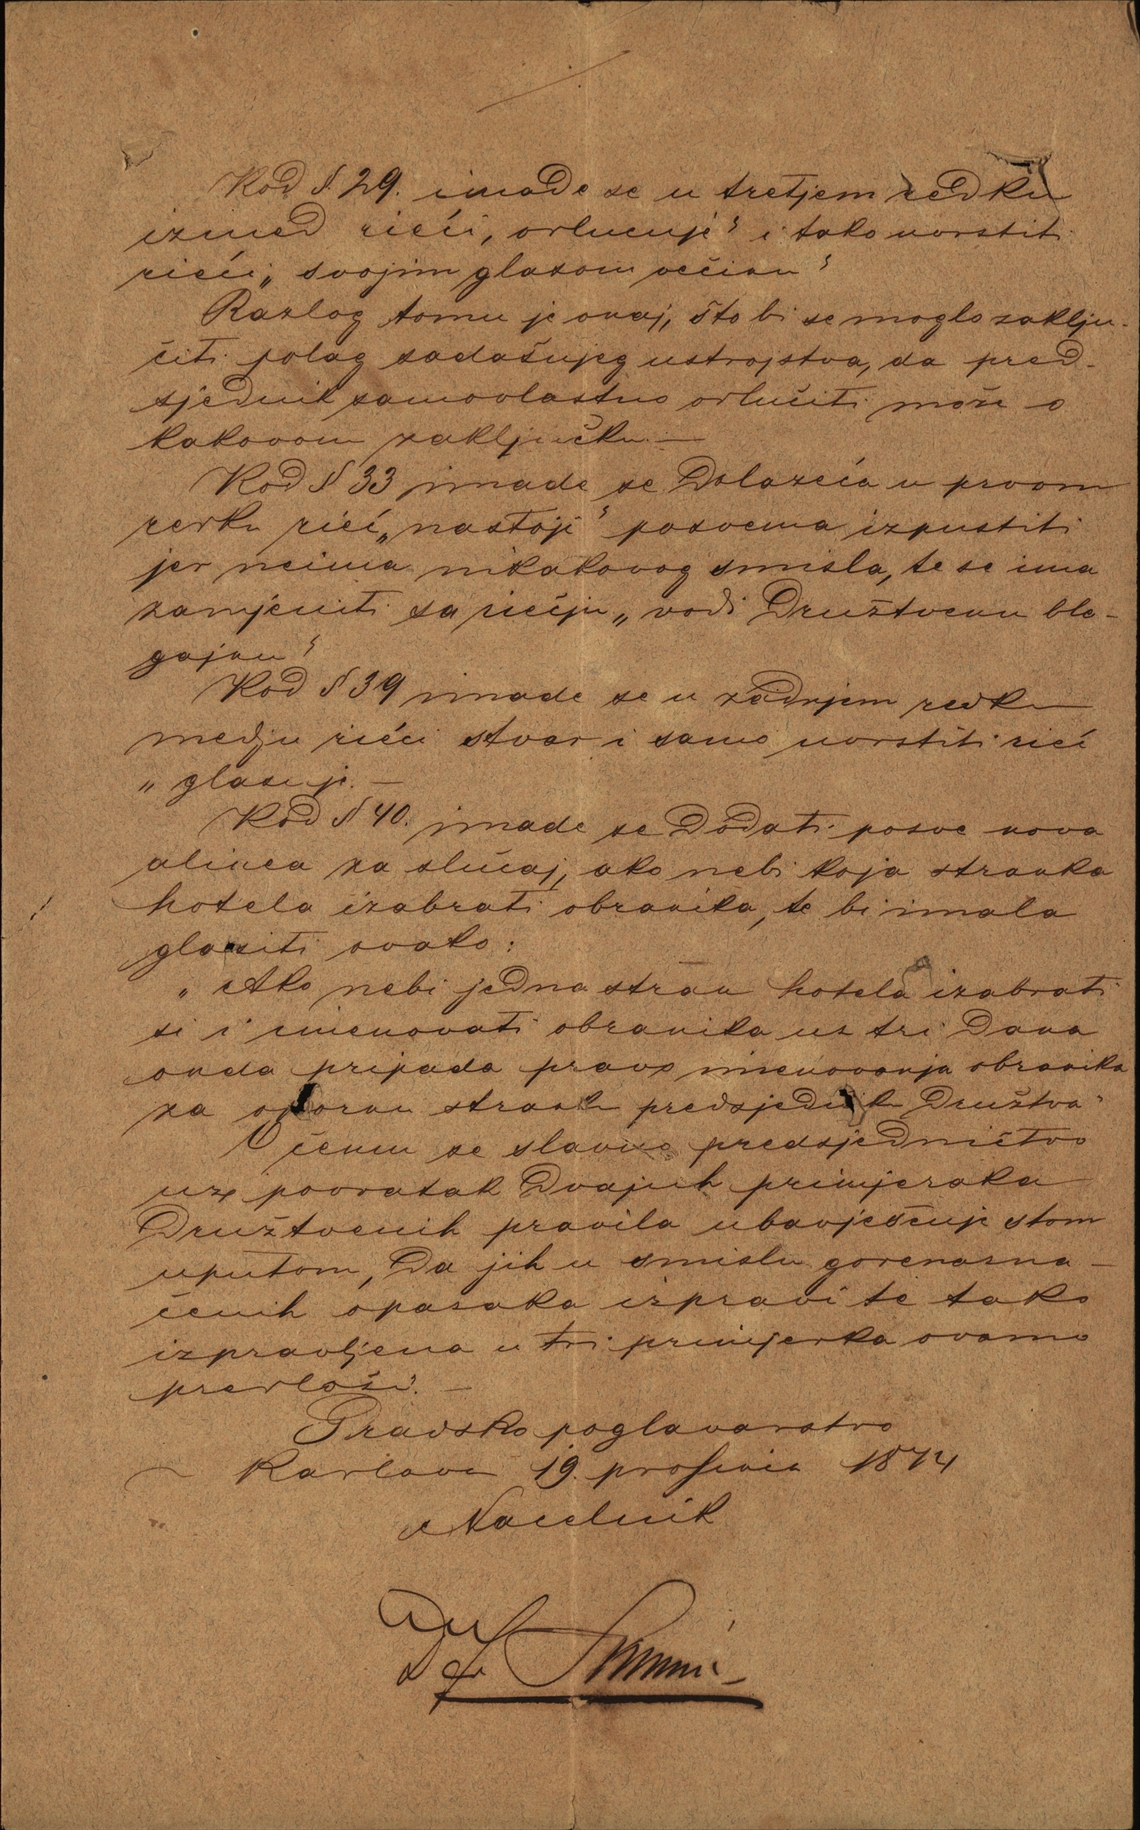 Kod §. 29. imade se u tretjem redku
izmed rieči, odlučuje" i tako uvrstiti
rieči „ svojim glasom većinu "
Razlog tomu je onaj, što bi se moglo zaklju-
čiti polag sadašnjeg ustrojstva, da pred-
sjednik samovlastno odlučiti može o
kakovom zaključku. —
Kod § 33 imade se dolazeća u prvom
redku rieč „nastoji" posvema izpustiti
jer neima nikakovog smisla, te se ima
zamjeniti sa riečju „ vodi Družtvenu bla-
gajnu"
Kod § 39 imade se u zadnjem redku
medju rieči stvar i samo uvrstiti rieč
„ glasuje. —
Kod § 40. imade se dodati posve nova
alinea za slučaj, ako nebi koja stranka
hotela izabrati obranika, te bi imala
glasiti ovako:
„ Ako nebi jedna stran hotela izabrati
si i imenovati obranika uz tri dana
onda pripada pravo imenovanja obranika
za opornu stranku predsjedniku Družtva"
O čemu se slavno predsjedničtvo
uz povratak dvajuh primjeraka
Družtvenih pravila ubavješćuje stom
uputom, da jih u smislu gorenazna-
čenih opazaka izpravi te tako
izpravljena u tri primjerka ovamo
predloži. —
Gradsko poglavarstvo
Karlovac 19. prosinca 1874
Načelnik